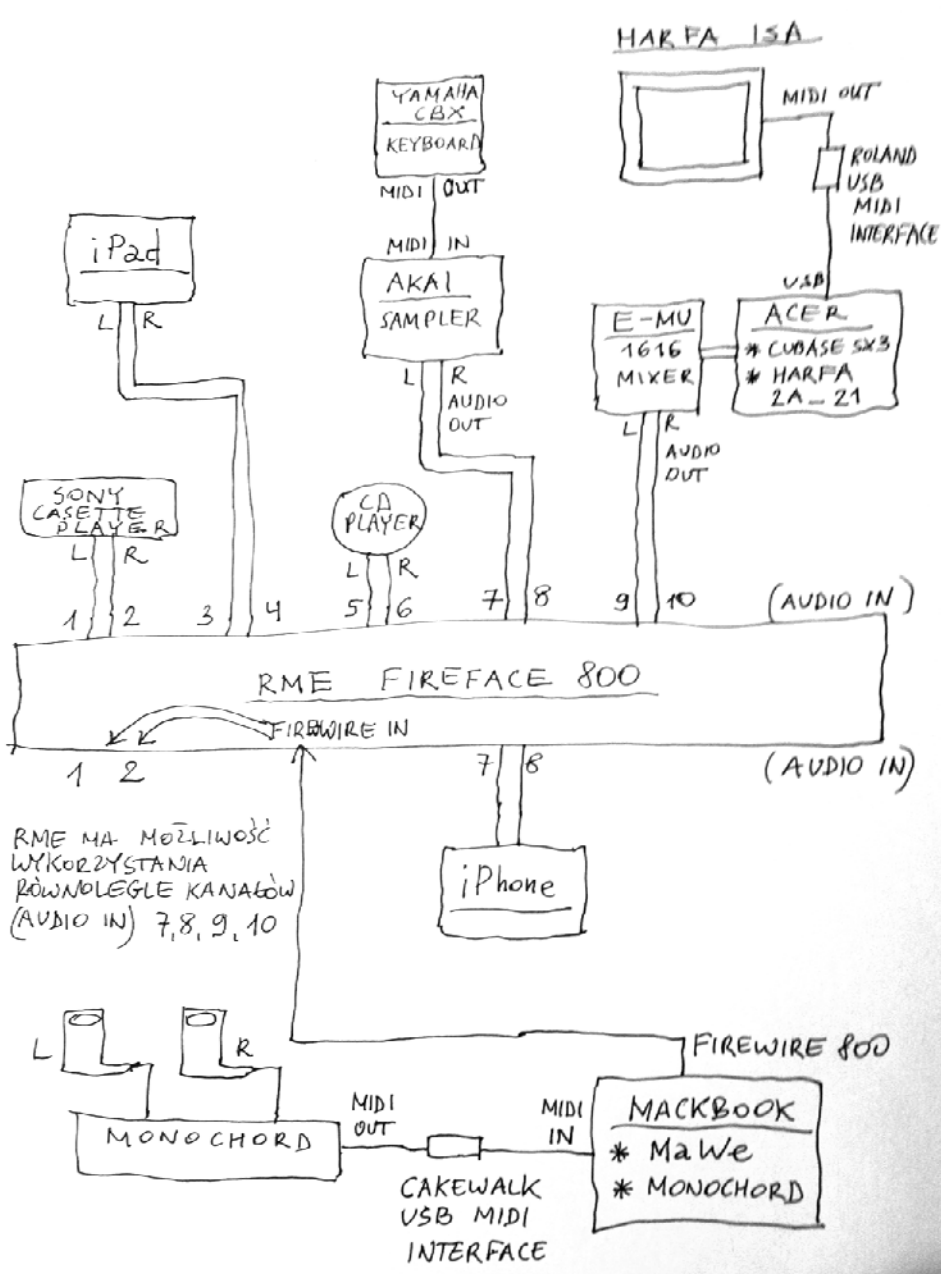 HARFA ISA
MIDI OUT
ROLAND
USB
MIDI
INTERFACE
USB
ACER
* CUBASE SX3
* HARFA
2A_21
YAMAHA
CBX
KEYBOARD
MIDI OUT
MIDI IN
AKAI
SAMPLER
L R
AUDIO
OUT
E-MU
1616
MIXER
L R
AUDIO
OUT
iPad
L R
SONY
CASETTE
PLAYER
L R
CD
PLAYER
L R
1 2 3 4 5 6 7 8 9 10 (AUDIO IN)
RME FIREFACE 800
FIREWIRE IN
1 2 7 8 (AUDIO IN)
RME MA MOŻLIWOŚĆ
WYKORZYSTANIA
RÓWNOLEGLE KANAŁÓW
(AUDIO IN) 7,8,9,10
iPhone
L R
MONOCHORD
MIDI
OUT
CAKEWALK
USB MIDI
INTERFACE
MIDI
IN
FIREWIRE 800
MACKBOOK
* MaWe
* MONOCHORD